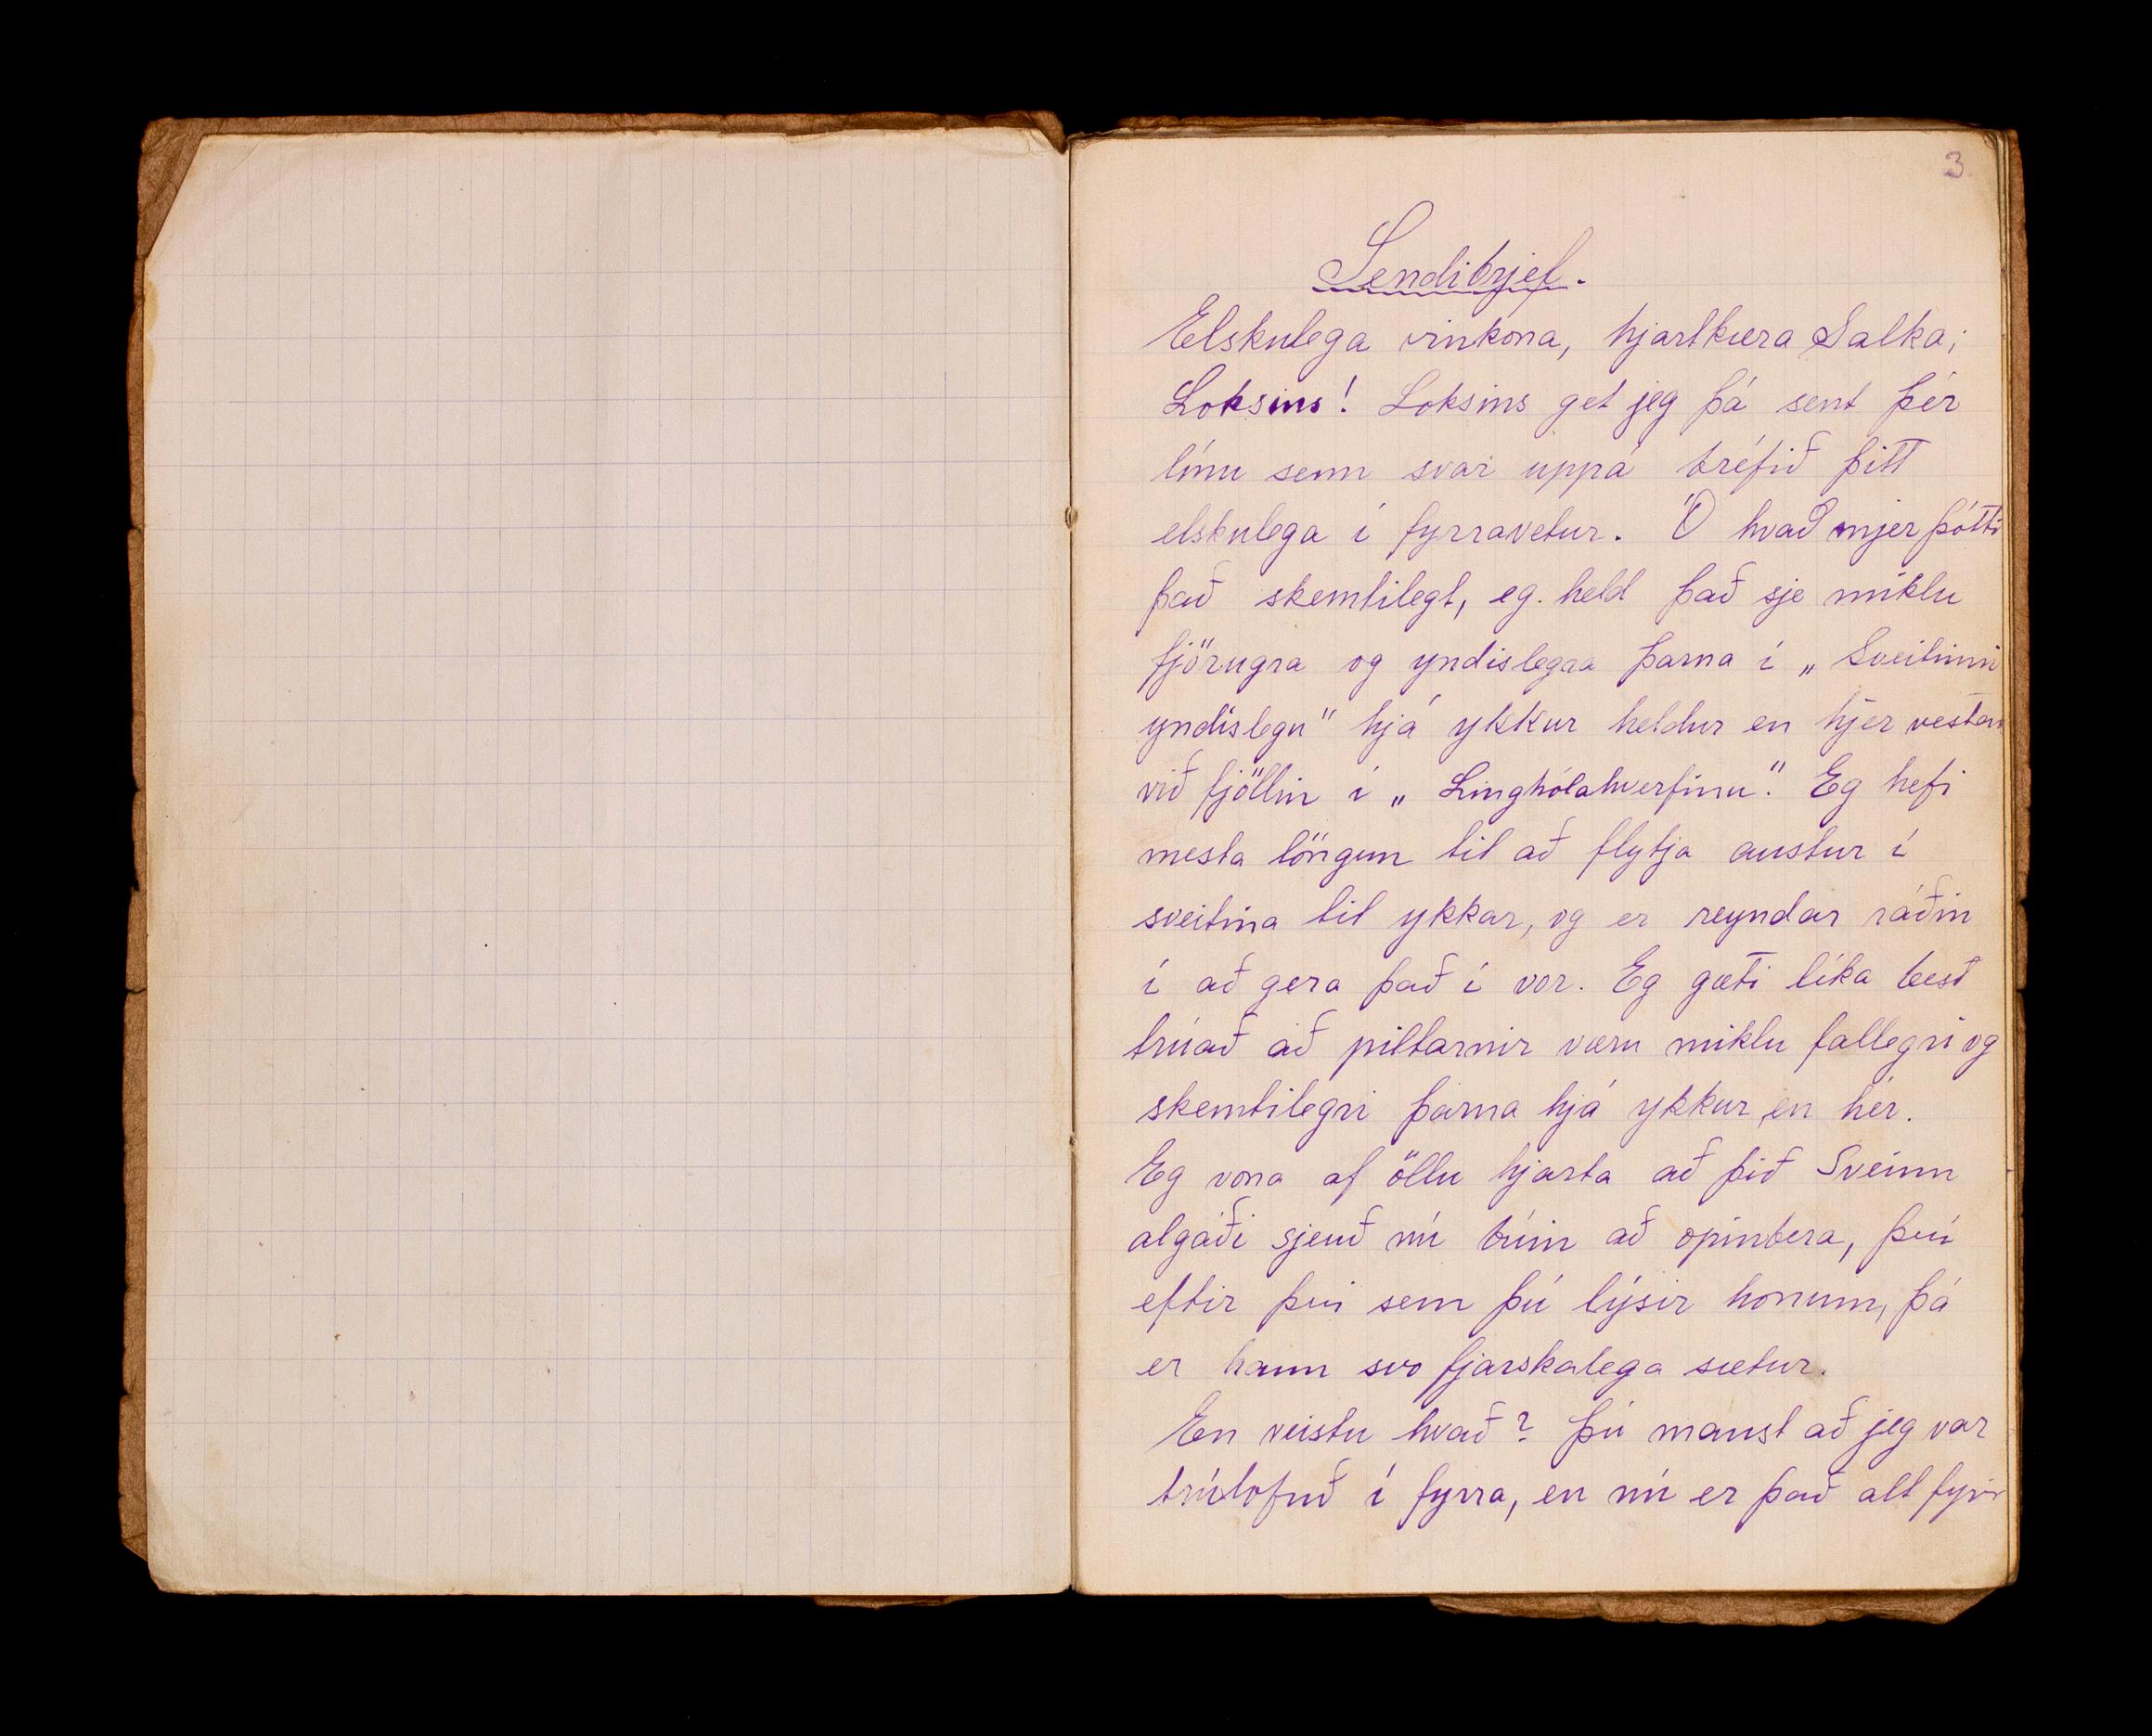 3
Sendibrjef.
Elskulega vinkona, hjartkæra Salka;
Loksins! Loksins get jeg þá sent þér
línu sem svar uppá bréfið þitt
elskulega í fyrravetur. Ó hvað mjer þótti
það skemtilegt, eg. held það sje miklu
fjörugra og yndislegra þarna í „Sveitinni
yndislegu" hjá ykkur heldur en hjer vestan
við fjöllin í „Linghólahverfinu". Eg hefi
mesta löngun til að flytja austur í
sveitina til ykkar, og er reyndar ráðin
í að gera það í vor. Eg gæti líka best
trúað að piltarnir væru miklu fallegri og
skemtilegri þarna hjá ykkur en hér.
Eg vona af öllu hjarta að þið Sveinn
algáði sjeuð nú búin að opinbera, því
eftir því sem þú lýsir honum, þá
er hann svo fjarskalega sætur.
En veistu hvað? Þú manst að jeg var
trúlofuð í fyrra, en nú er það alt fyrir